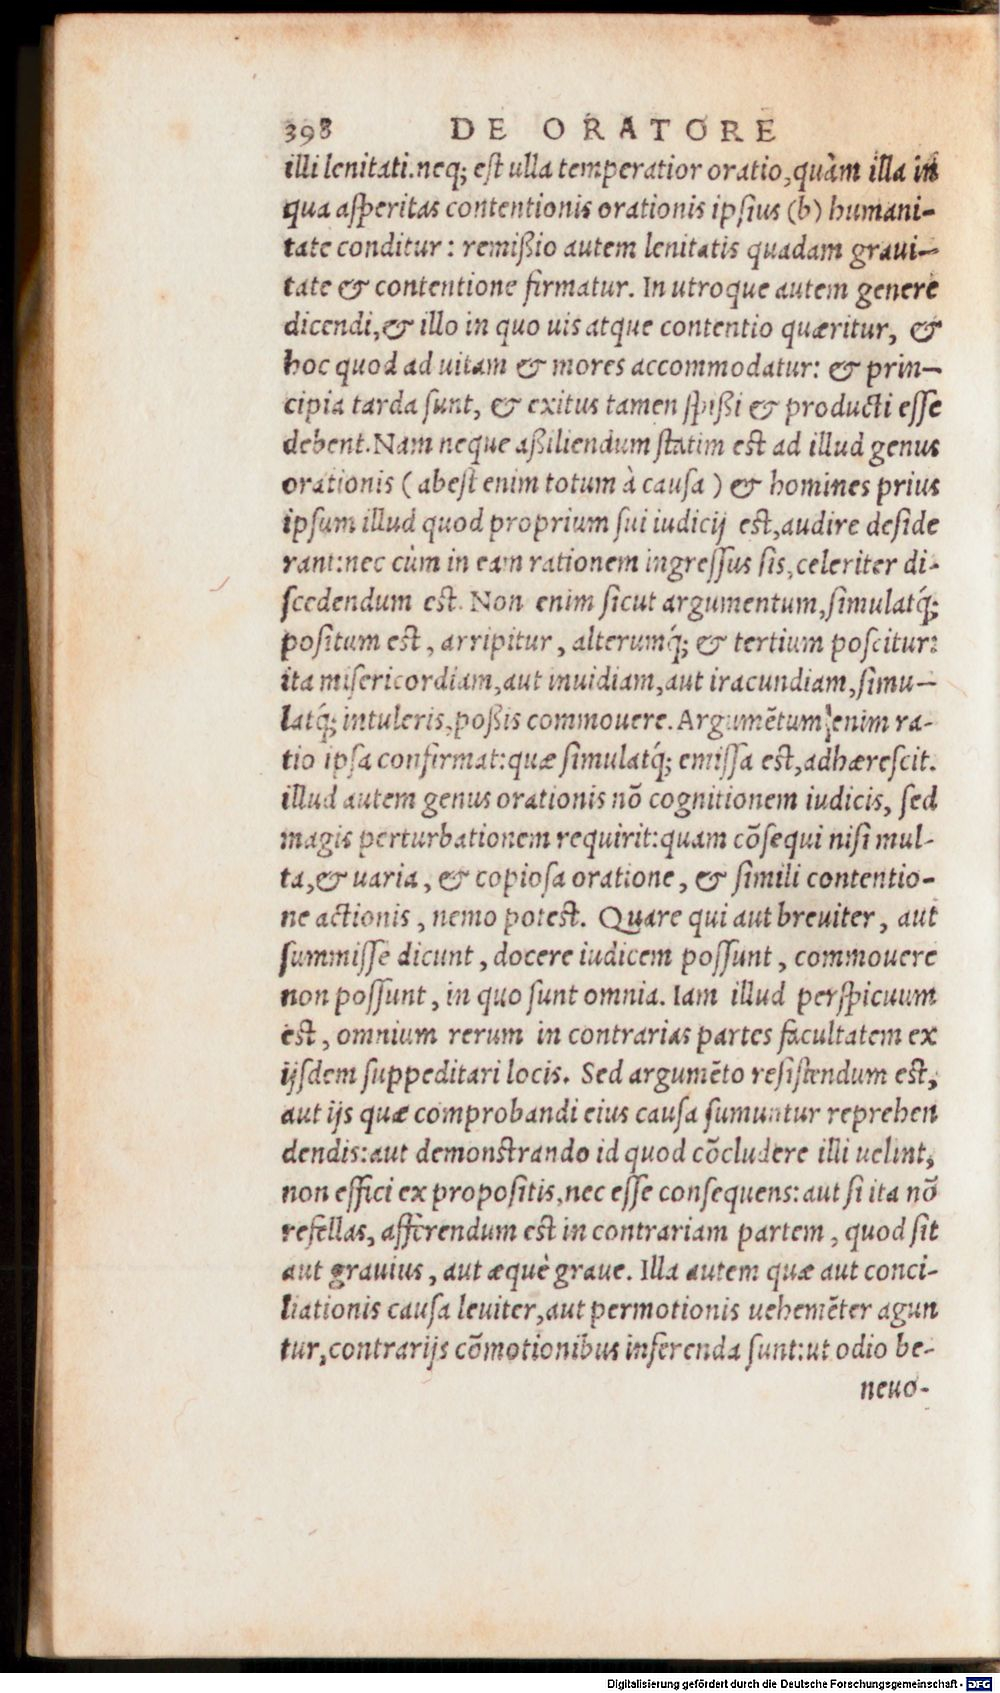 398 DE ORATORE
illi lenitati.neq; est ulla temperatior oratio,quàm illa in
qua asperitas contentionis orationis ipsius (b) humani-
tate conditur: remißio autem lenitatis quadam graui-
tate & contentione firmatur. In utroque autem genere
dicendi,& illo in quo uis atque contentio quæritur, &
hoc quod ad uitam & mores accommodatur: & prin-
cipia tarda sunt, & exitus tamen spißi & producti esse
debent.Nam neque aßiliendum statim est ad illud genus
orationis (abest enim totum à causa) & homines prius
ipsum illud quod proprium sui iudicij est,audire deside
rant:nec cùm in eam rationem ingressus sis,celeriter di-
scedendum est. Non enim sicut argumentum,simulatq́;
positum est, arripitur, alterumq́; & tertium poscitur:
ita misericordiam,aut inuidiam,aut iracundiam,simu-
latq́; intuleris,poßis commouere. Argumētum enim ra-
tio ipsa confirmat:quæ simulatq́; emissa est,adhærescit.
illud autem genus orationis nō cognitionem iudicis, sed
magis perturbationem requirit:quam cōsequi nisi mul-
ta,& uaria, & copiosa oratione, & simili contentio-
ne actionis, nemo potest. Quare qui aut breuiter, aut
summisse dicunt, docere iudicem possunt, commouere
non possunt, in quo sunt omnia. Iam illud perspicuum
est, omnium rerum in contrarias partes facultatem ex
ijsdem suppeditari locis. Sed argumēto resistendum est,
aut ijs quæ comprobandi eius causa sumuntur reprehen
dendis:aut demonstrando id quod cōcludere illi uelint,
non effici ex propositis,nec esse consequens:aut si ita nō
refellas, afferendum est in contrariam partem, quod sit
aut grauius, aut æquè graue. Illa autem quæ aut conci-
liationis causa leuiter,aut permotionis uehemēter agun
tur,contrarijs cōmotionibus inferenda sunt:ut odio be-
neuo-
Digitalisierung gefördert durch die Deutsche Forschungsgemeinschaft - DFG